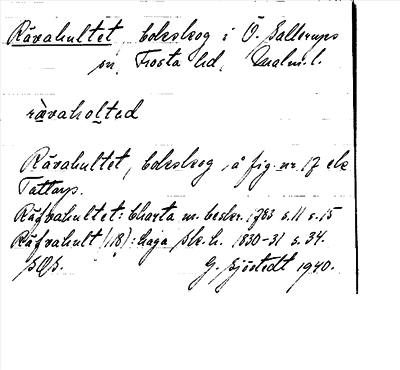 Rävahultet, bokskog i Ö. Sallerups
sn, Frosta hd, Malm. l.
rävahολtəd
Rävahultet, bokskog, å fig. nr. 17 ek
Tattarp.
Räfvahultet: Charta m. beskr. 1783 s. 11 s. 15
Räfvahult (18): haga Sk. h. 1830-31 s. 34.
G. Sjöstedt 1940.